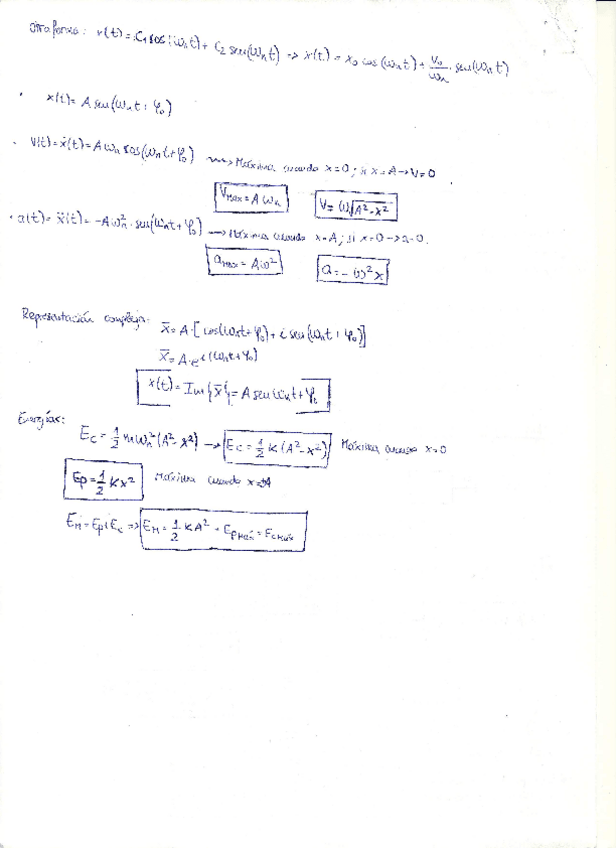 Otra forma: x(t) = C₁ cos(ωₙt) + C₂ sen(ωₙt) => x(t) = x₀ cos(ωₙt) + v₀/ωₙ · sen(ωₙt)
· x(t) = A sen(ωₙt + φ₀)
· V(t) = ẋ(t) = Aωₙ cos(ωₙt + φ₀) ⟿ Máxima cuando x=0; si x=A → V=0.
Vmax = Aωₙ V = ω√A²-x²
· a(t) = ẍ(t) = -Aωₙ² · sen(ωₙt + φ₀) → Máxima cuando x=A; si x=0 → a=0.
amax = Aω² a = -ω²x
Representación compleja: x̄ = A · [cos(ωₙt + φ₀) + i sen(ωₙt + φ₀)]
x̄ = A · e^i(ωₙt + φ₀)
x(t) = Im{x̄} = A sen ωₙt + φ₀
Energías:
Ec = 1/2 mωₙ²(A² - x²) → Ec = 1/2 K(A² - x²) Máxima cuando x=0
Ep = 1/2 Kx² Máxima cuando x=±A
EM = Ep + Ec => EM = 1/2 KA² = Epmáx = Ecmáx